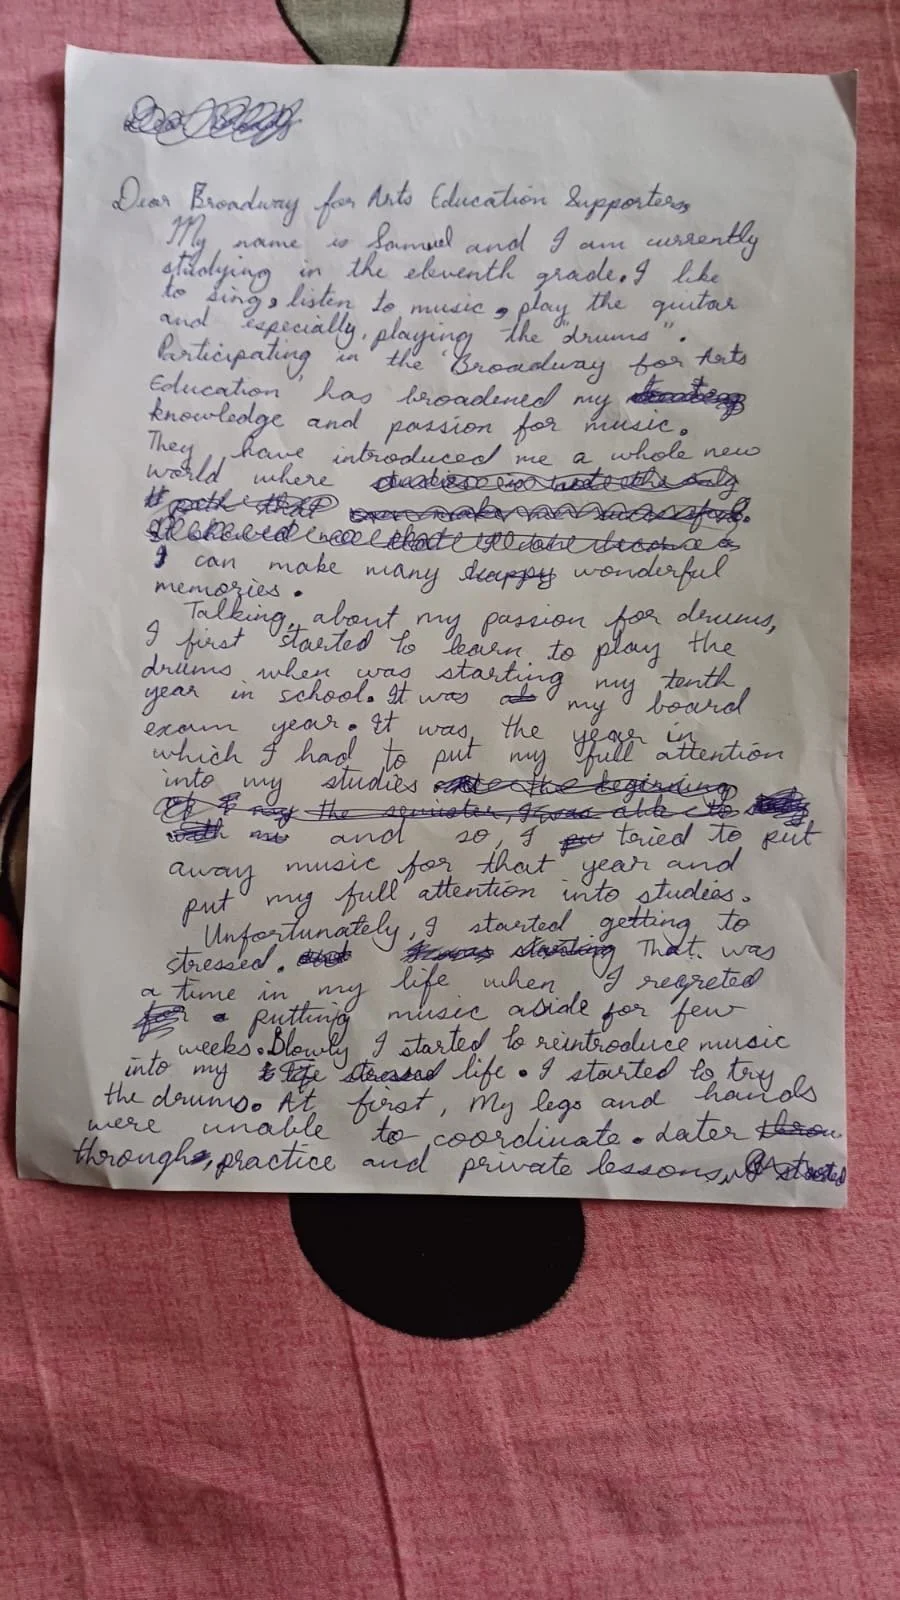 Dear Broadway for Arts Education Supporters,
My name is Samuel and I am currently
studying in the eleventh grade. I like
to sing, listen to music, play the guitar
and especially, playing the "drums".
Participating in the 'Broadway for Arts
Education' has broadened my
knowledge and passion for music.
They have introduced me a whole new
world where studies is not the only
path that can make me successful.
I can make many happy wonderful
memories.
Talking, about my passion for drums,
I first started to learn to play the
drums when was starting my tenth
year in school. It was my board
exam year. It was the year in
which I had to put my full attention
into my studies. At the beginning
of my the semister, I was able to study
with and so, I tried to put
away music for that year and
put my full attention into studies.
Unfortunately, I started getting to
stressed. and I was starting That was
a time in my life when I regreted
for a putting music aside for few
weeks. Slowly I started to reintroduce music
into my life stressed life. I started to try
the drums. At first, My legs and hands
were unable to coordinate. Later
through, practice and private lessons, I started